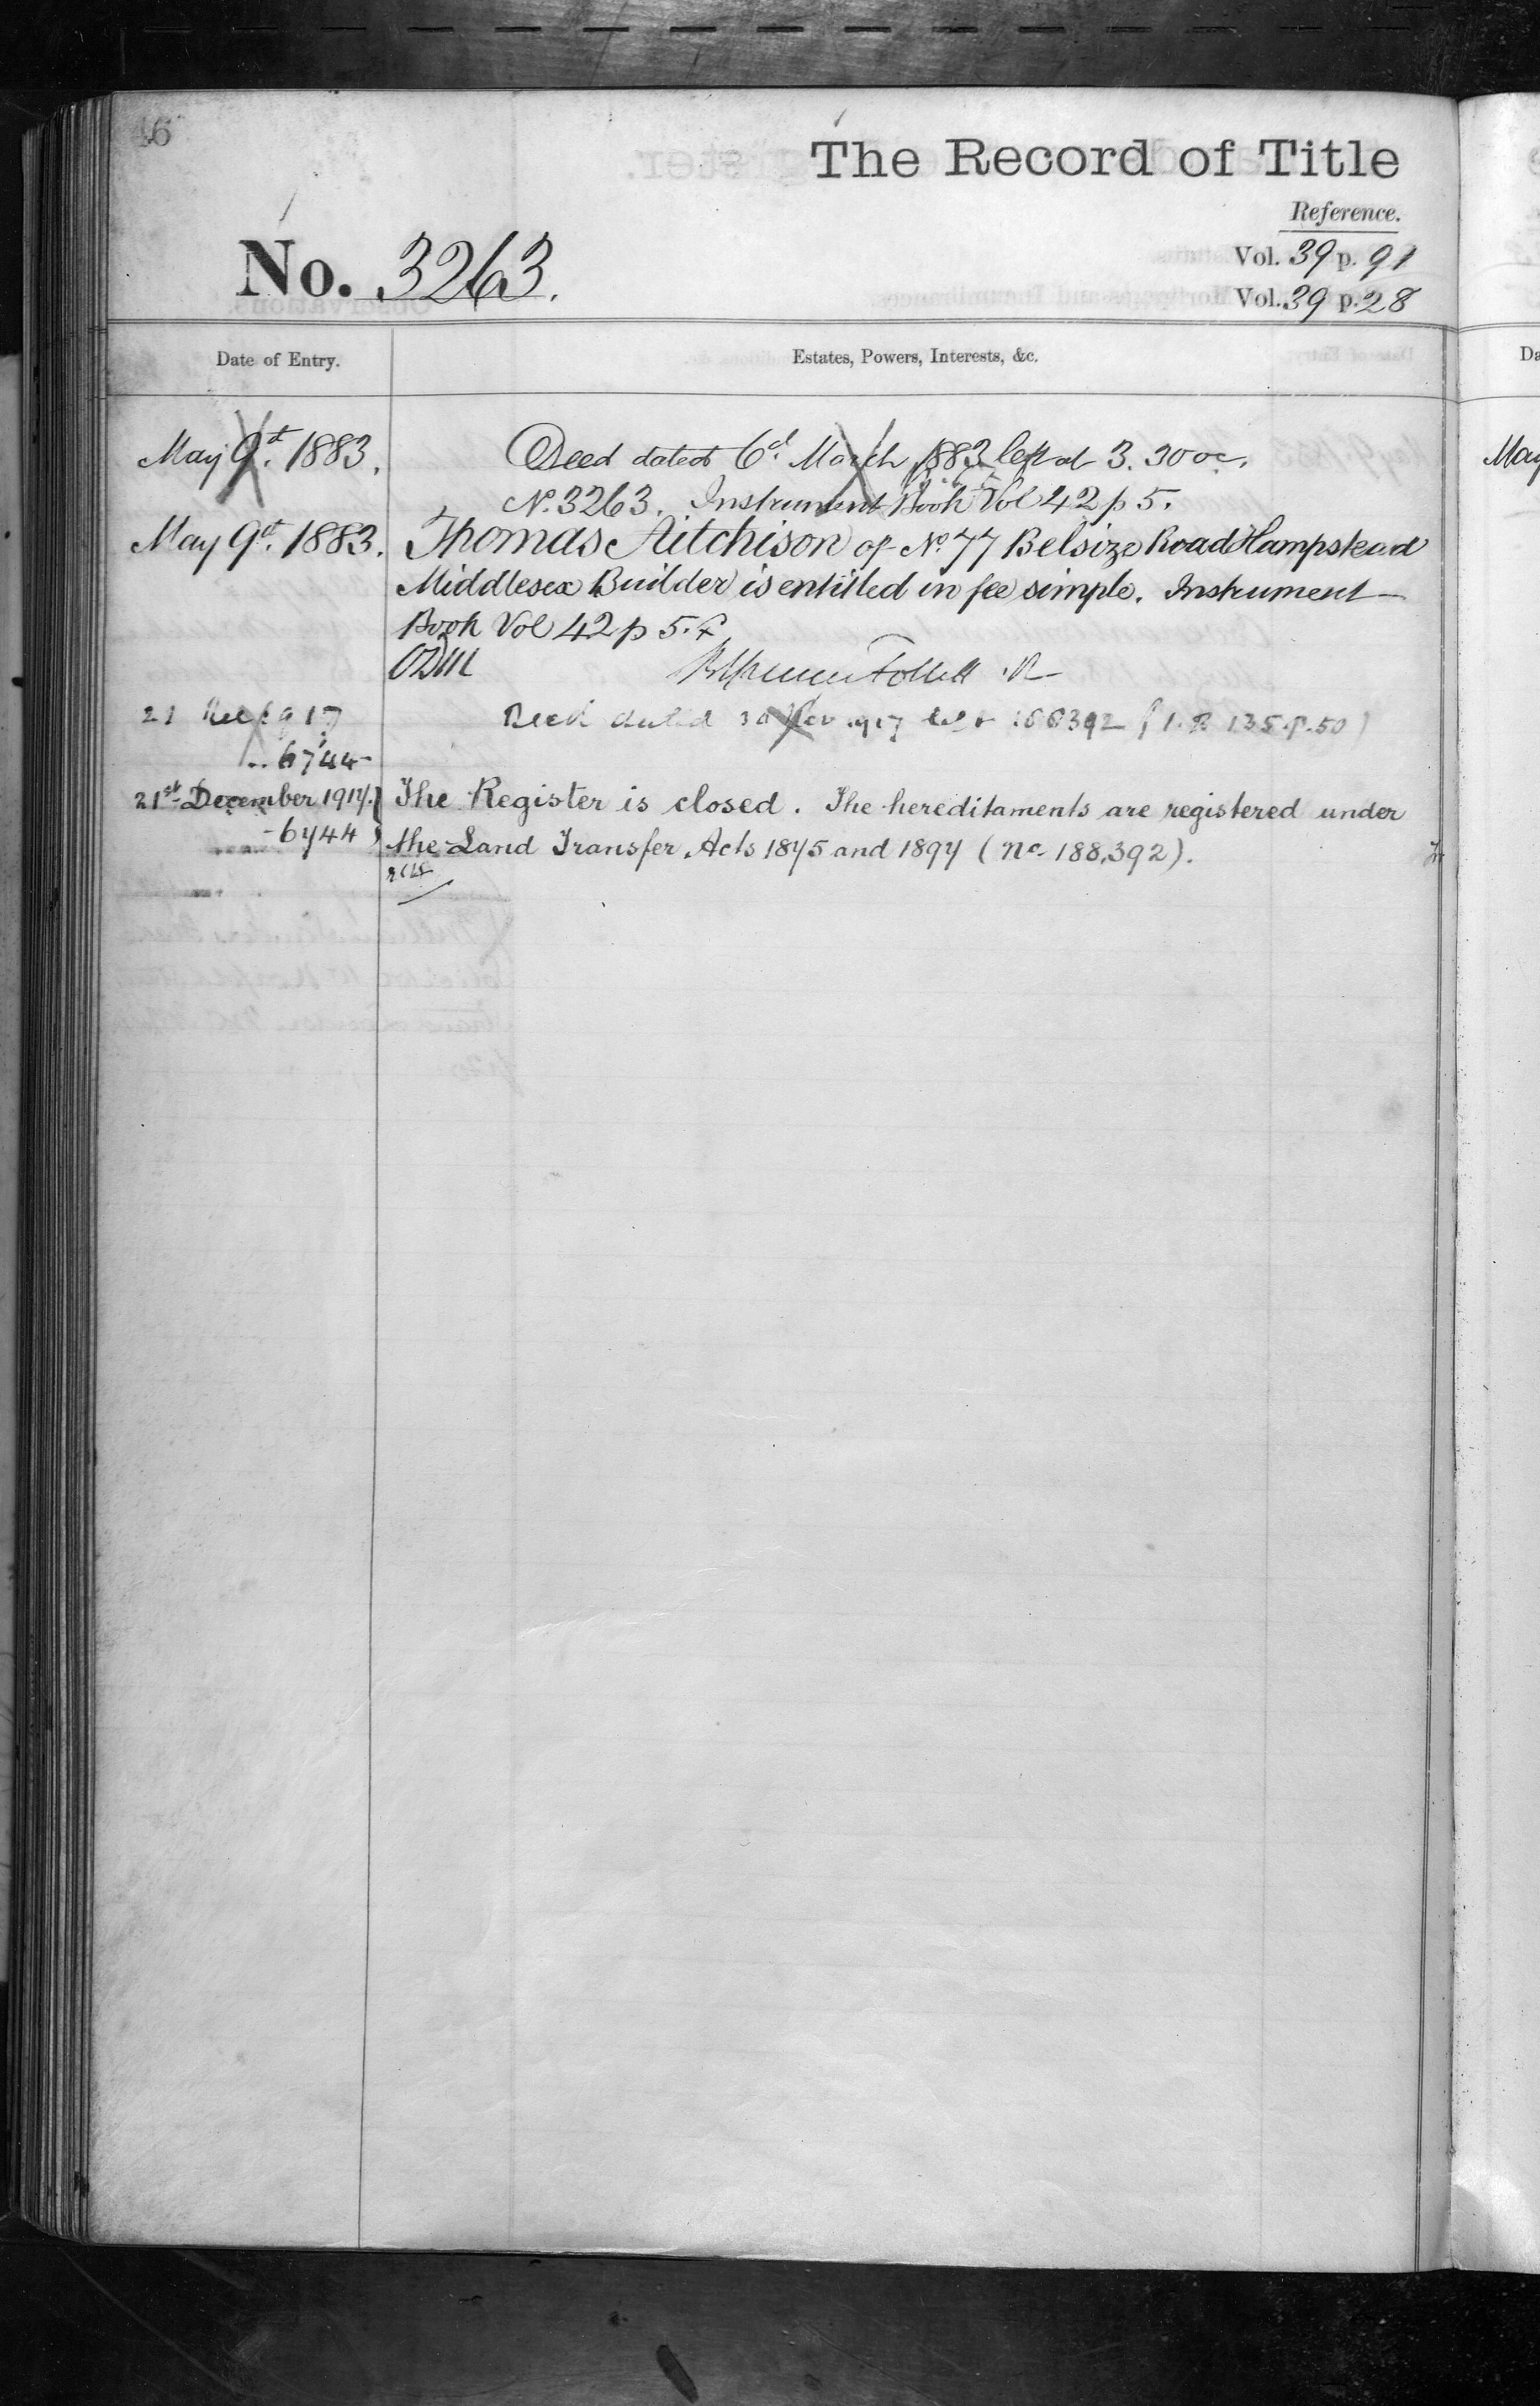 46
The Record of Title
Reference.
No. 3263.
Vol. 39 p. 91
Vol. 39 p. 28
Date of Entry.
Estates, Powers, Interests, &c.
May 9th. 1883.
Deed dated 6th March 1883 left at 3.30 oc.
No. 3263. Instrument Book Vol 42 p 5.
May 9th. 1883.
Thomas Aitchison of No. 77 Belsize Road Hampstead
Middlesex Builder is entitled in fee simple. Instrument
Book Vol 42 p 5.
Follett R
21 Dec 1917
6744
Deed dated 30 Nov 1917 188392 (I. B 135. p. 50)
21st December 1917.
6744
The Register is closed. The hereditaments are registered under
the Land Transfer Acts 1875 and 1897 (No. 188,392).
Da
May